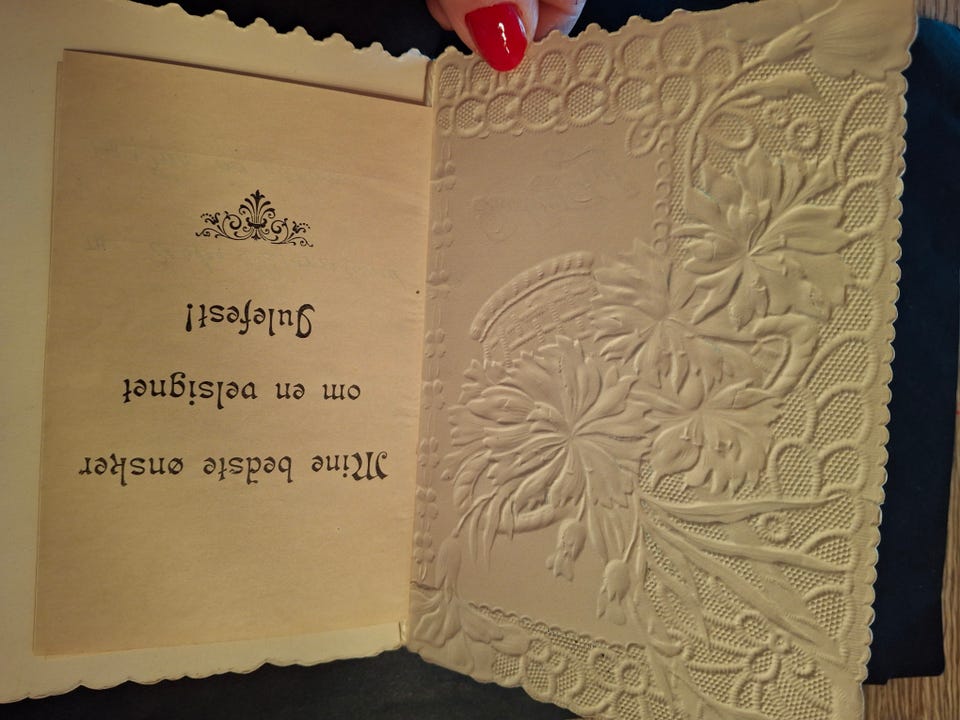 Mine bedste ønsker
om en velsignet
Julefest!